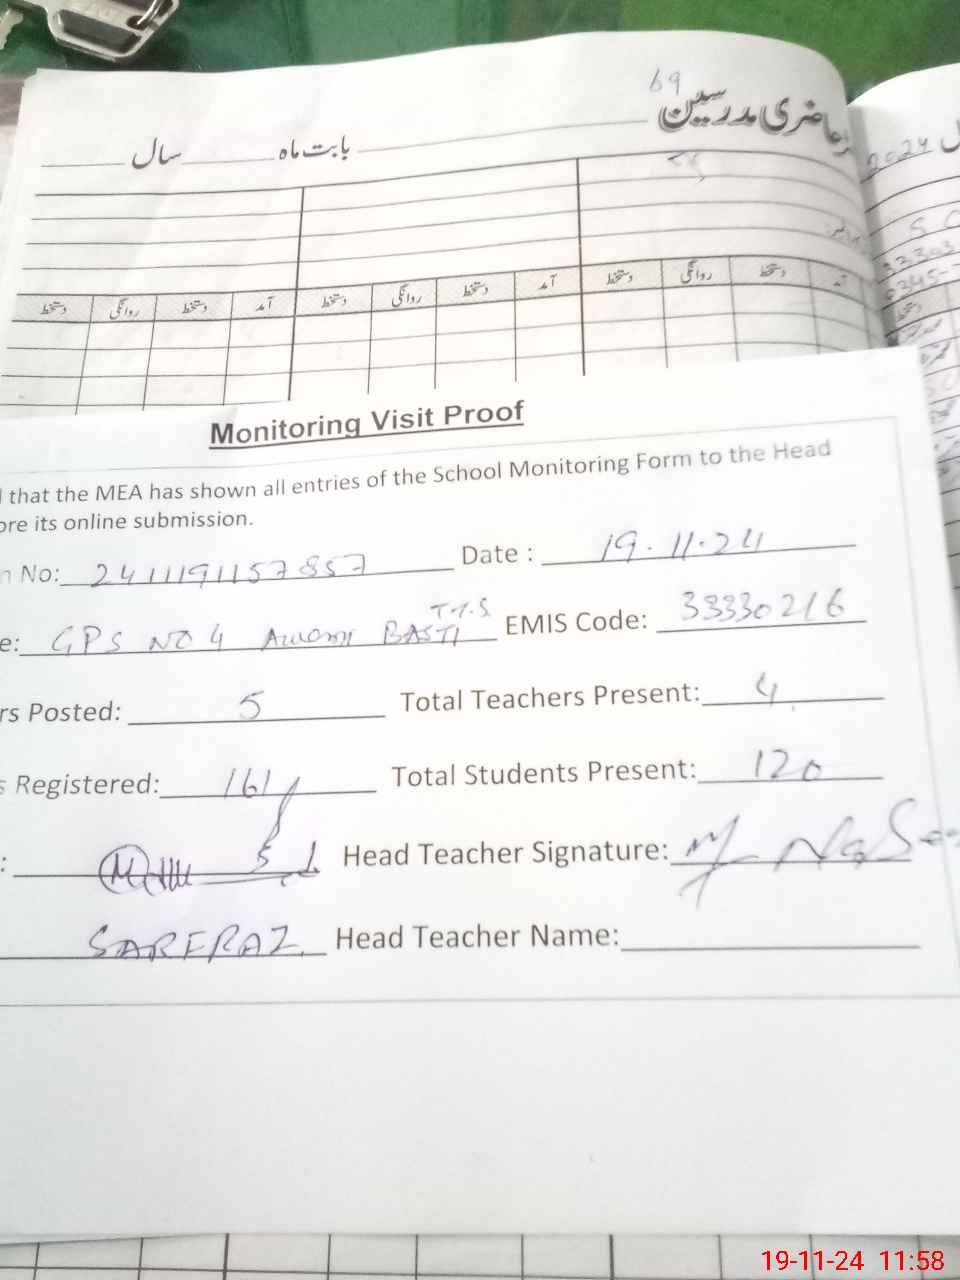 69
حاضری مدرسین
بابت ماه سال
2024
دستخط روانگی دستخط آمد دستخط روانگی دستخط آمد دستخط روانگی دستخط آمد
Monitoring Visit Proof
that the MEA has shown all entries of the School Monitoring Form to the Head
ore its online submission.
n No: 2411191157857 Date : 19.11.24
e: GPS NO 4 Awami BASTI T.T.S EMIS Code: 33330216
rs Posted: 5 Total Teachers Present: 4
s Registered: 161 Total Students Present: 120
: Head Teacher Signature:
SARFRAZ Head Teacher Name:
19-11-24 11:58